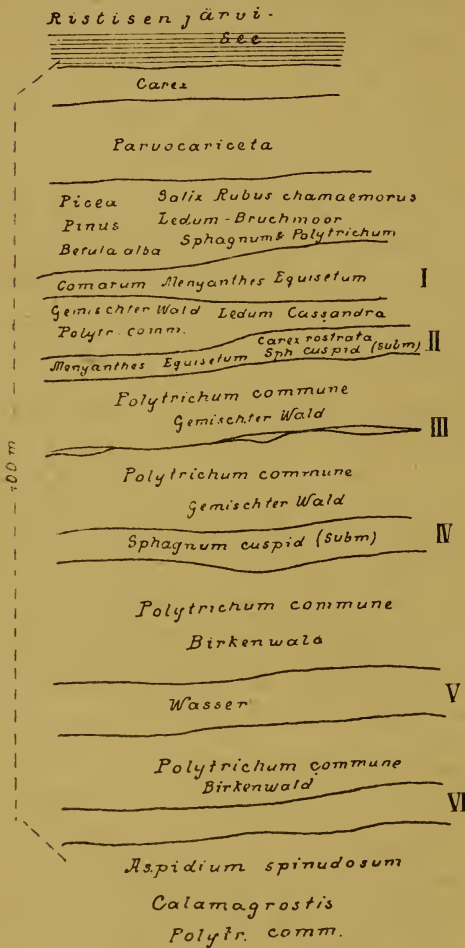 Ristisenjärvi-
See
Carex
Parvocariceta
Picea Salix Rubus chamaemorus
Pinus Ledum-Bruchmoor
Betula alba Sphagnum & Polytrichum
Comarum Menyanthes Equisetum I
Gemischter Wald Ledum Cassandra
Polytr. comm. Carex rostrata
Menyanthes Equisetum Sph cuspid (Subm) II
Polytrichum commune
Gemischter Wald III
Polytrichum commune
Gemischter Wald
Sphagnum cuspid (Subm) IV
100 m
Polytrichum commune
Birkenwald
Wasser V
Polytrichum commune
Birkenwald VI
Aspidium spinudosum
Calamagrostis
Polytr. comm.